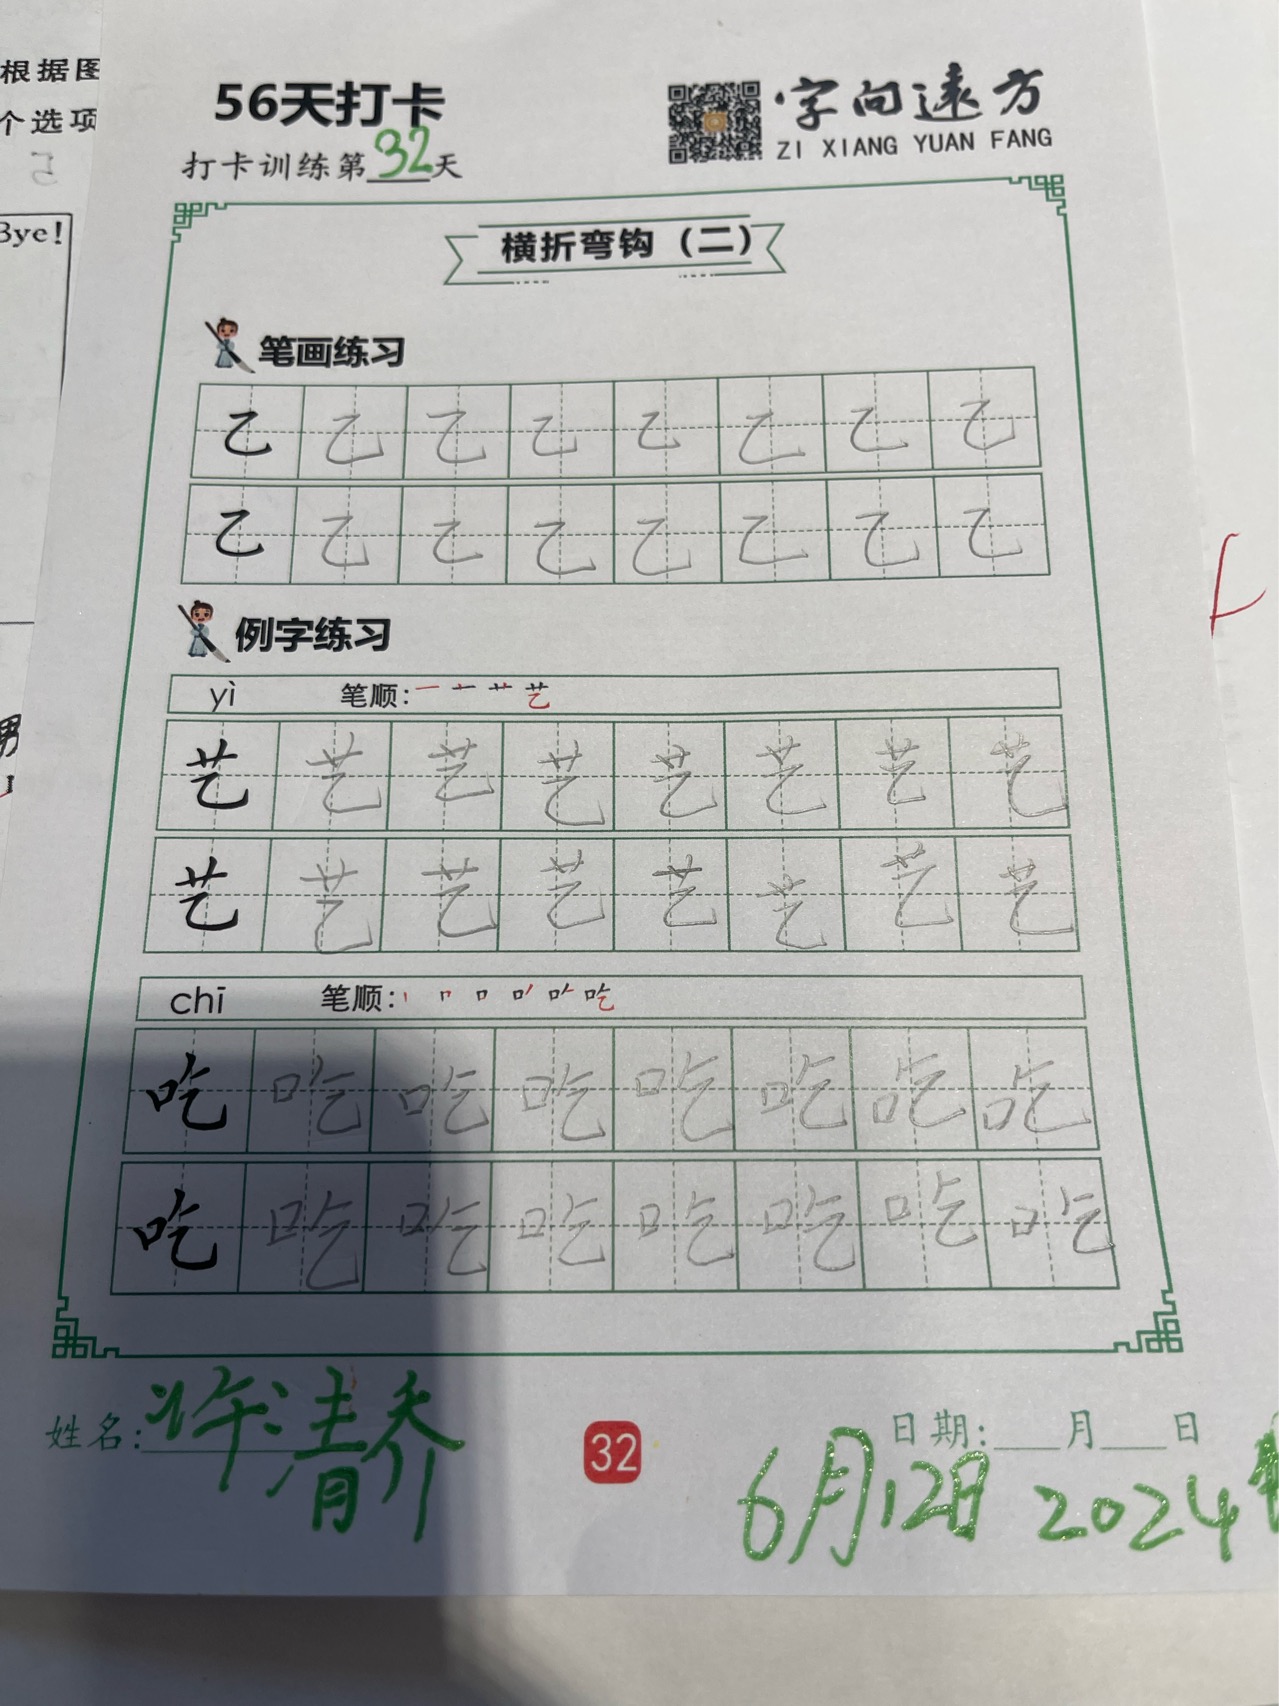 根据图
个选项
5
Bye!
男
56天打卡
打卡训练第32天
字向远方
ZI XIANG YUAN FANG
横折弯钩（二）
笔画练习
乙 乙 乙 乙 乙 乙 乙 乙
乙 乙 乙 乙 乙 乙 乙 乙
例字练习
yì 笔顺: 一 十 艹 艺
艺 艺 艺 艺 艺 艺 艺 艺
艺 艺 艺 艺 艺 艺 艺 艺
chī 笔顺: 丨 𠃍 口 吃
吃 吃 吃 吃 吃 吃 吃 吃
吃 吃 吃 吃 吃 吃 吃 吃
姓名: 许清乔
32
日期: 月 日
6月12日 2024